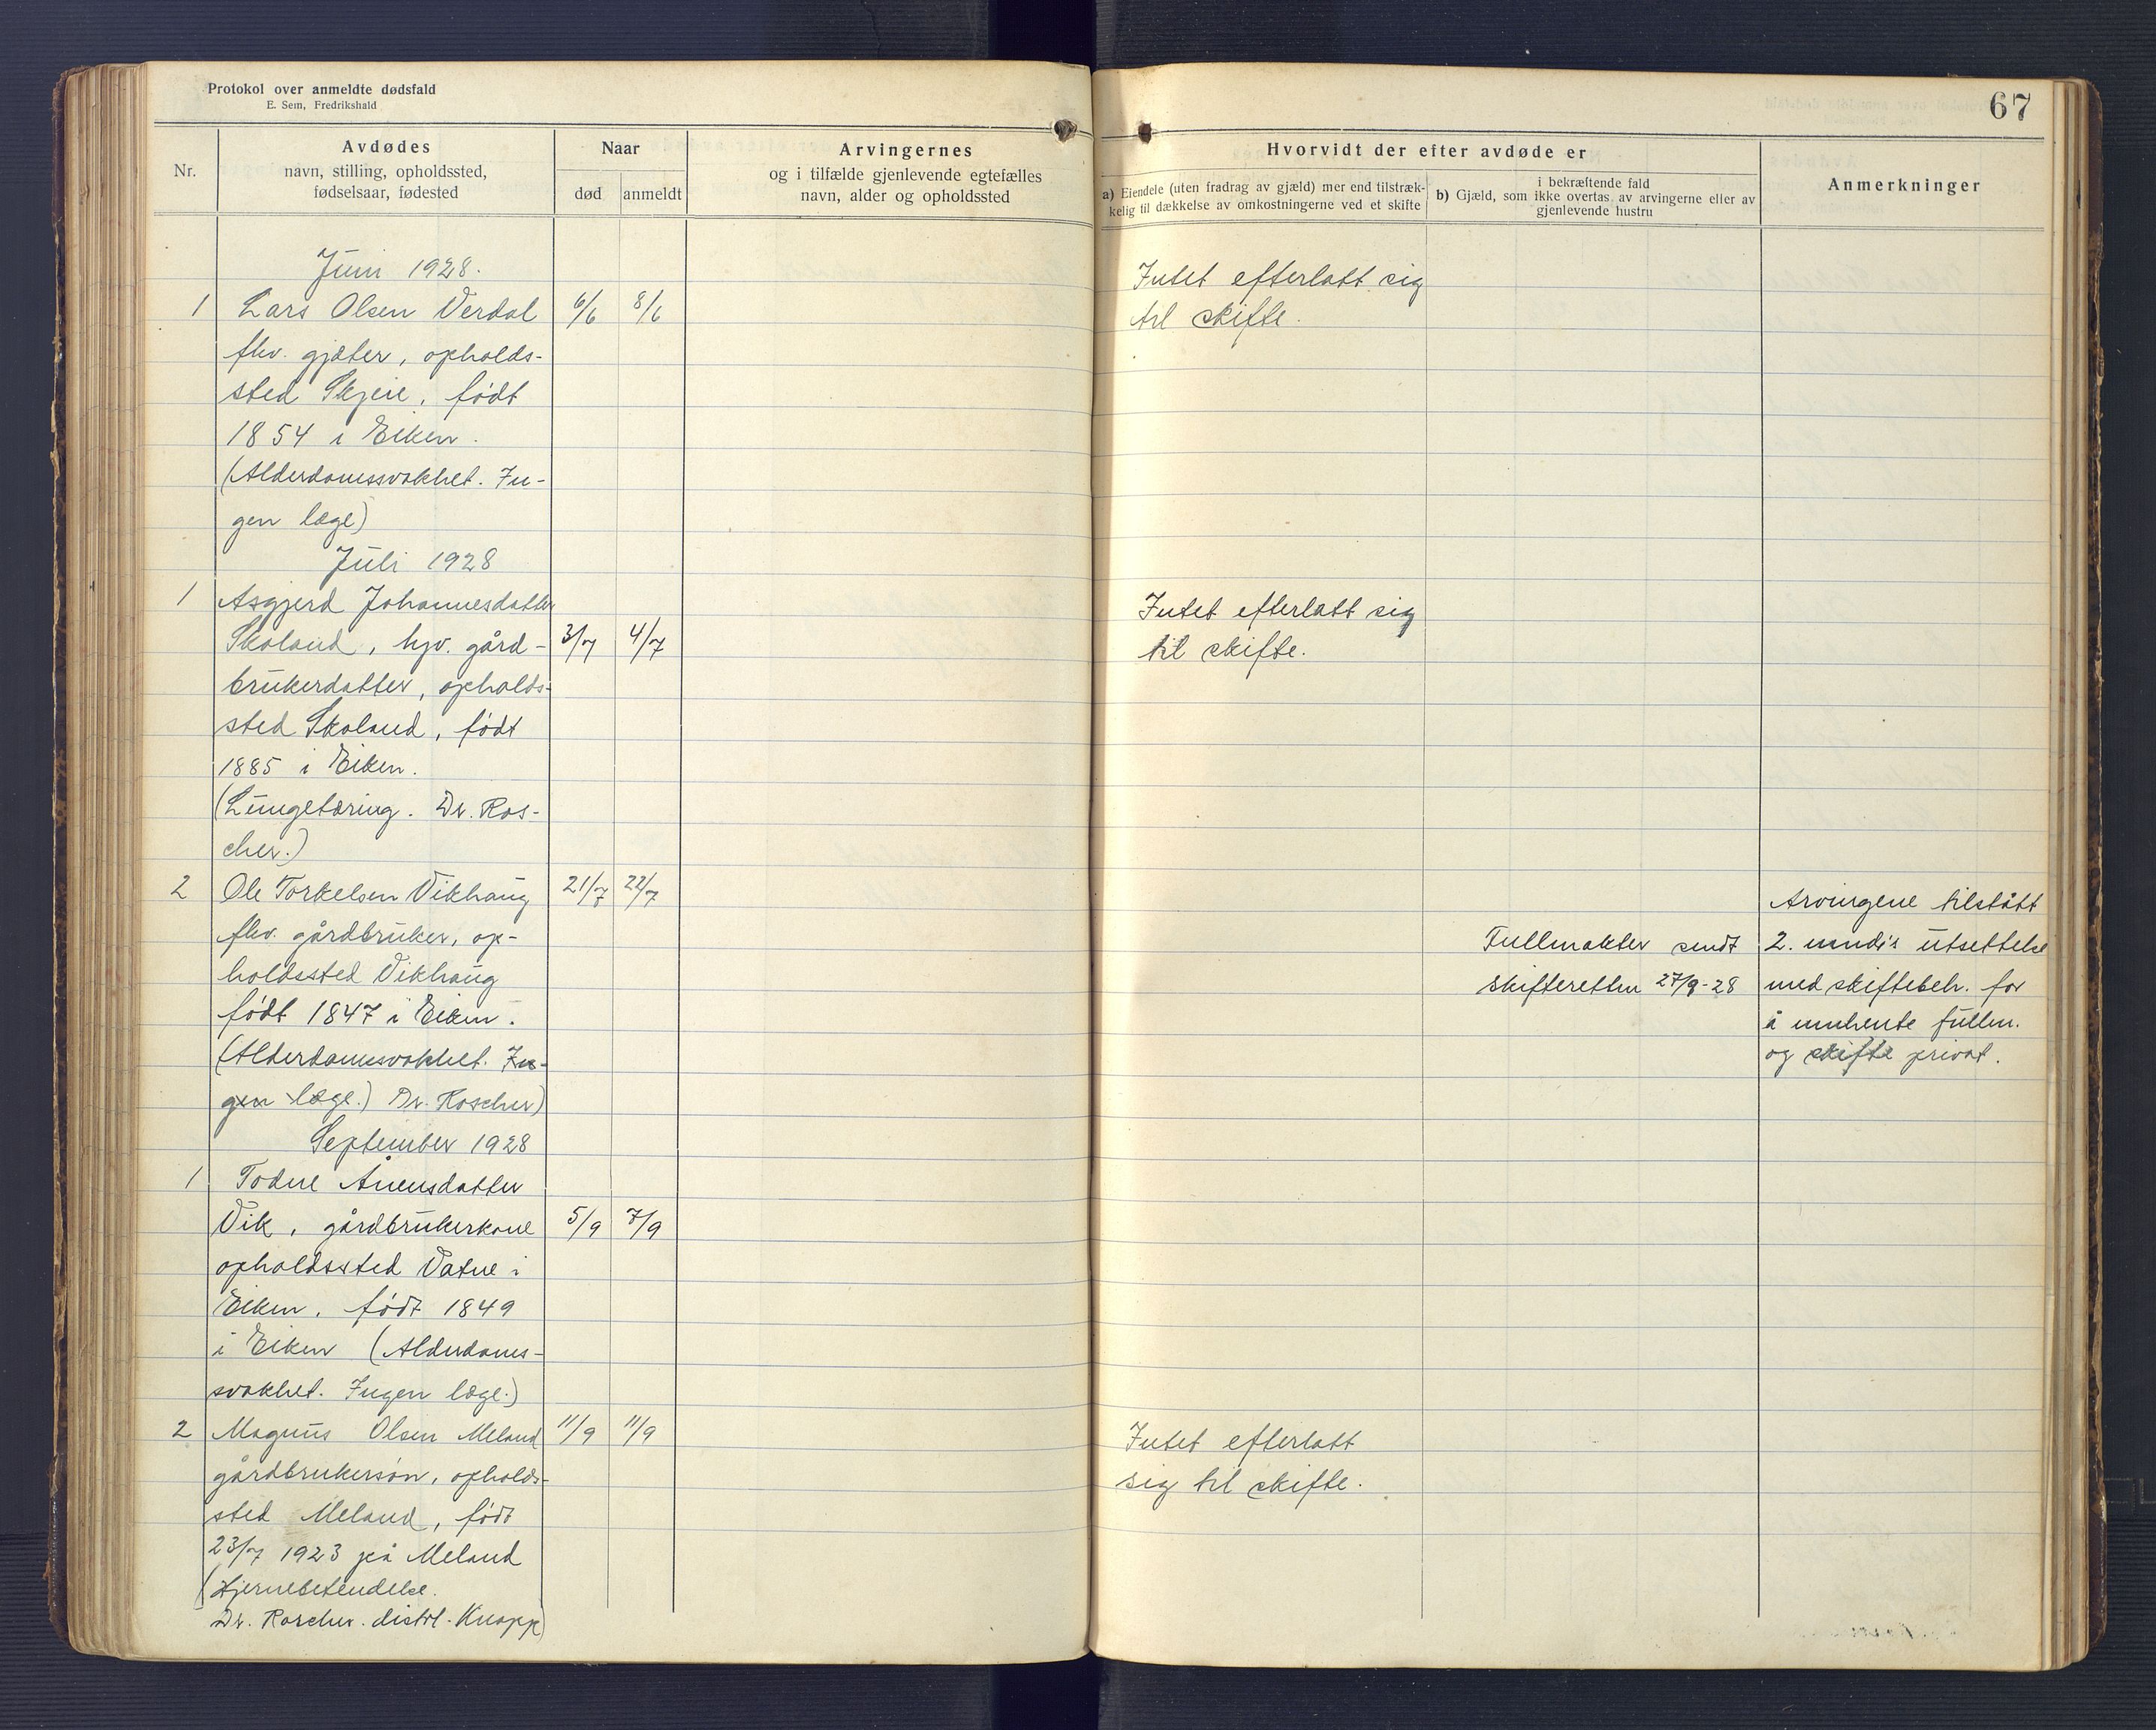 Protokol over anmeldte dødsfald
E. Sem, Fredrikshald
Nr.
Avdødes
navn, stilling, opholdssted,
fødselsaar, fødested
Naar
død
anmeldt
Arvingernes
og i tilfælde gjenlevende egtefælles
navn, alder og opholdssted
Juni 1928.
1 Lars Olsen Verdal 6/6 8/6
fhv. gjæter, opholds-
sted Skjeie, født
1854 i Eiken.
(Alderdomssvakhet. In-
gen læge)
Juli 1928
1 Asgjerd Johannesdatter
Skoland, hjv. gård- 3/7 4/7
brukerdatter, opholds-
sted Skoland, født
1885 i Eiken.
(Lungetæring. Dr. Ros-
cher.)
2 Ole Torkelsen Vikhaug 21/7 22/7
fhv. gårdbruker, op-
holdssted Vikhaug
født 1847 i Eiken.
(Alderdomssvakhet. In-
gen læge.) Dr. Roscher)
September 1928
1 Todne Ånensdatter
Vik, gårdbrukerkone 5/9 7/9
opholdssted Vatne i
Eiken, født 1849
i Eiken (Alderdoms-
svakhet. Ingen læge.)
2 Magnus Olsen Meland 11/9 11/9
gårdbrukersøn, opholds-
sted Meland, født
23/7 1923 på Meland
(Hjernebetendelse.
Dr. Roscher. distrl. Knapp)
67
Hvorvidt der efter avdøde er
a) Eiendele (uten fradrag av gjæld) mer end tilstræk-
kelig til dækkelse av omkostningerne ved et skifte
i bekræftende fald
b) Gjæld, som ikke overtas av arvingerne eller av
gjenlevende hustru
Anmerkninger
Intet efterlatt sig
til skifte.
Intet efterlatt sig
til skifte.
Fullmakter sendt
skifteretten 27/9-28
Arvingene tilstått
2. mndr's utsettelse
med skiftebeh. for
å innhente fullm.
og skifte privat.
Intet efterlatt
sig til skifte.